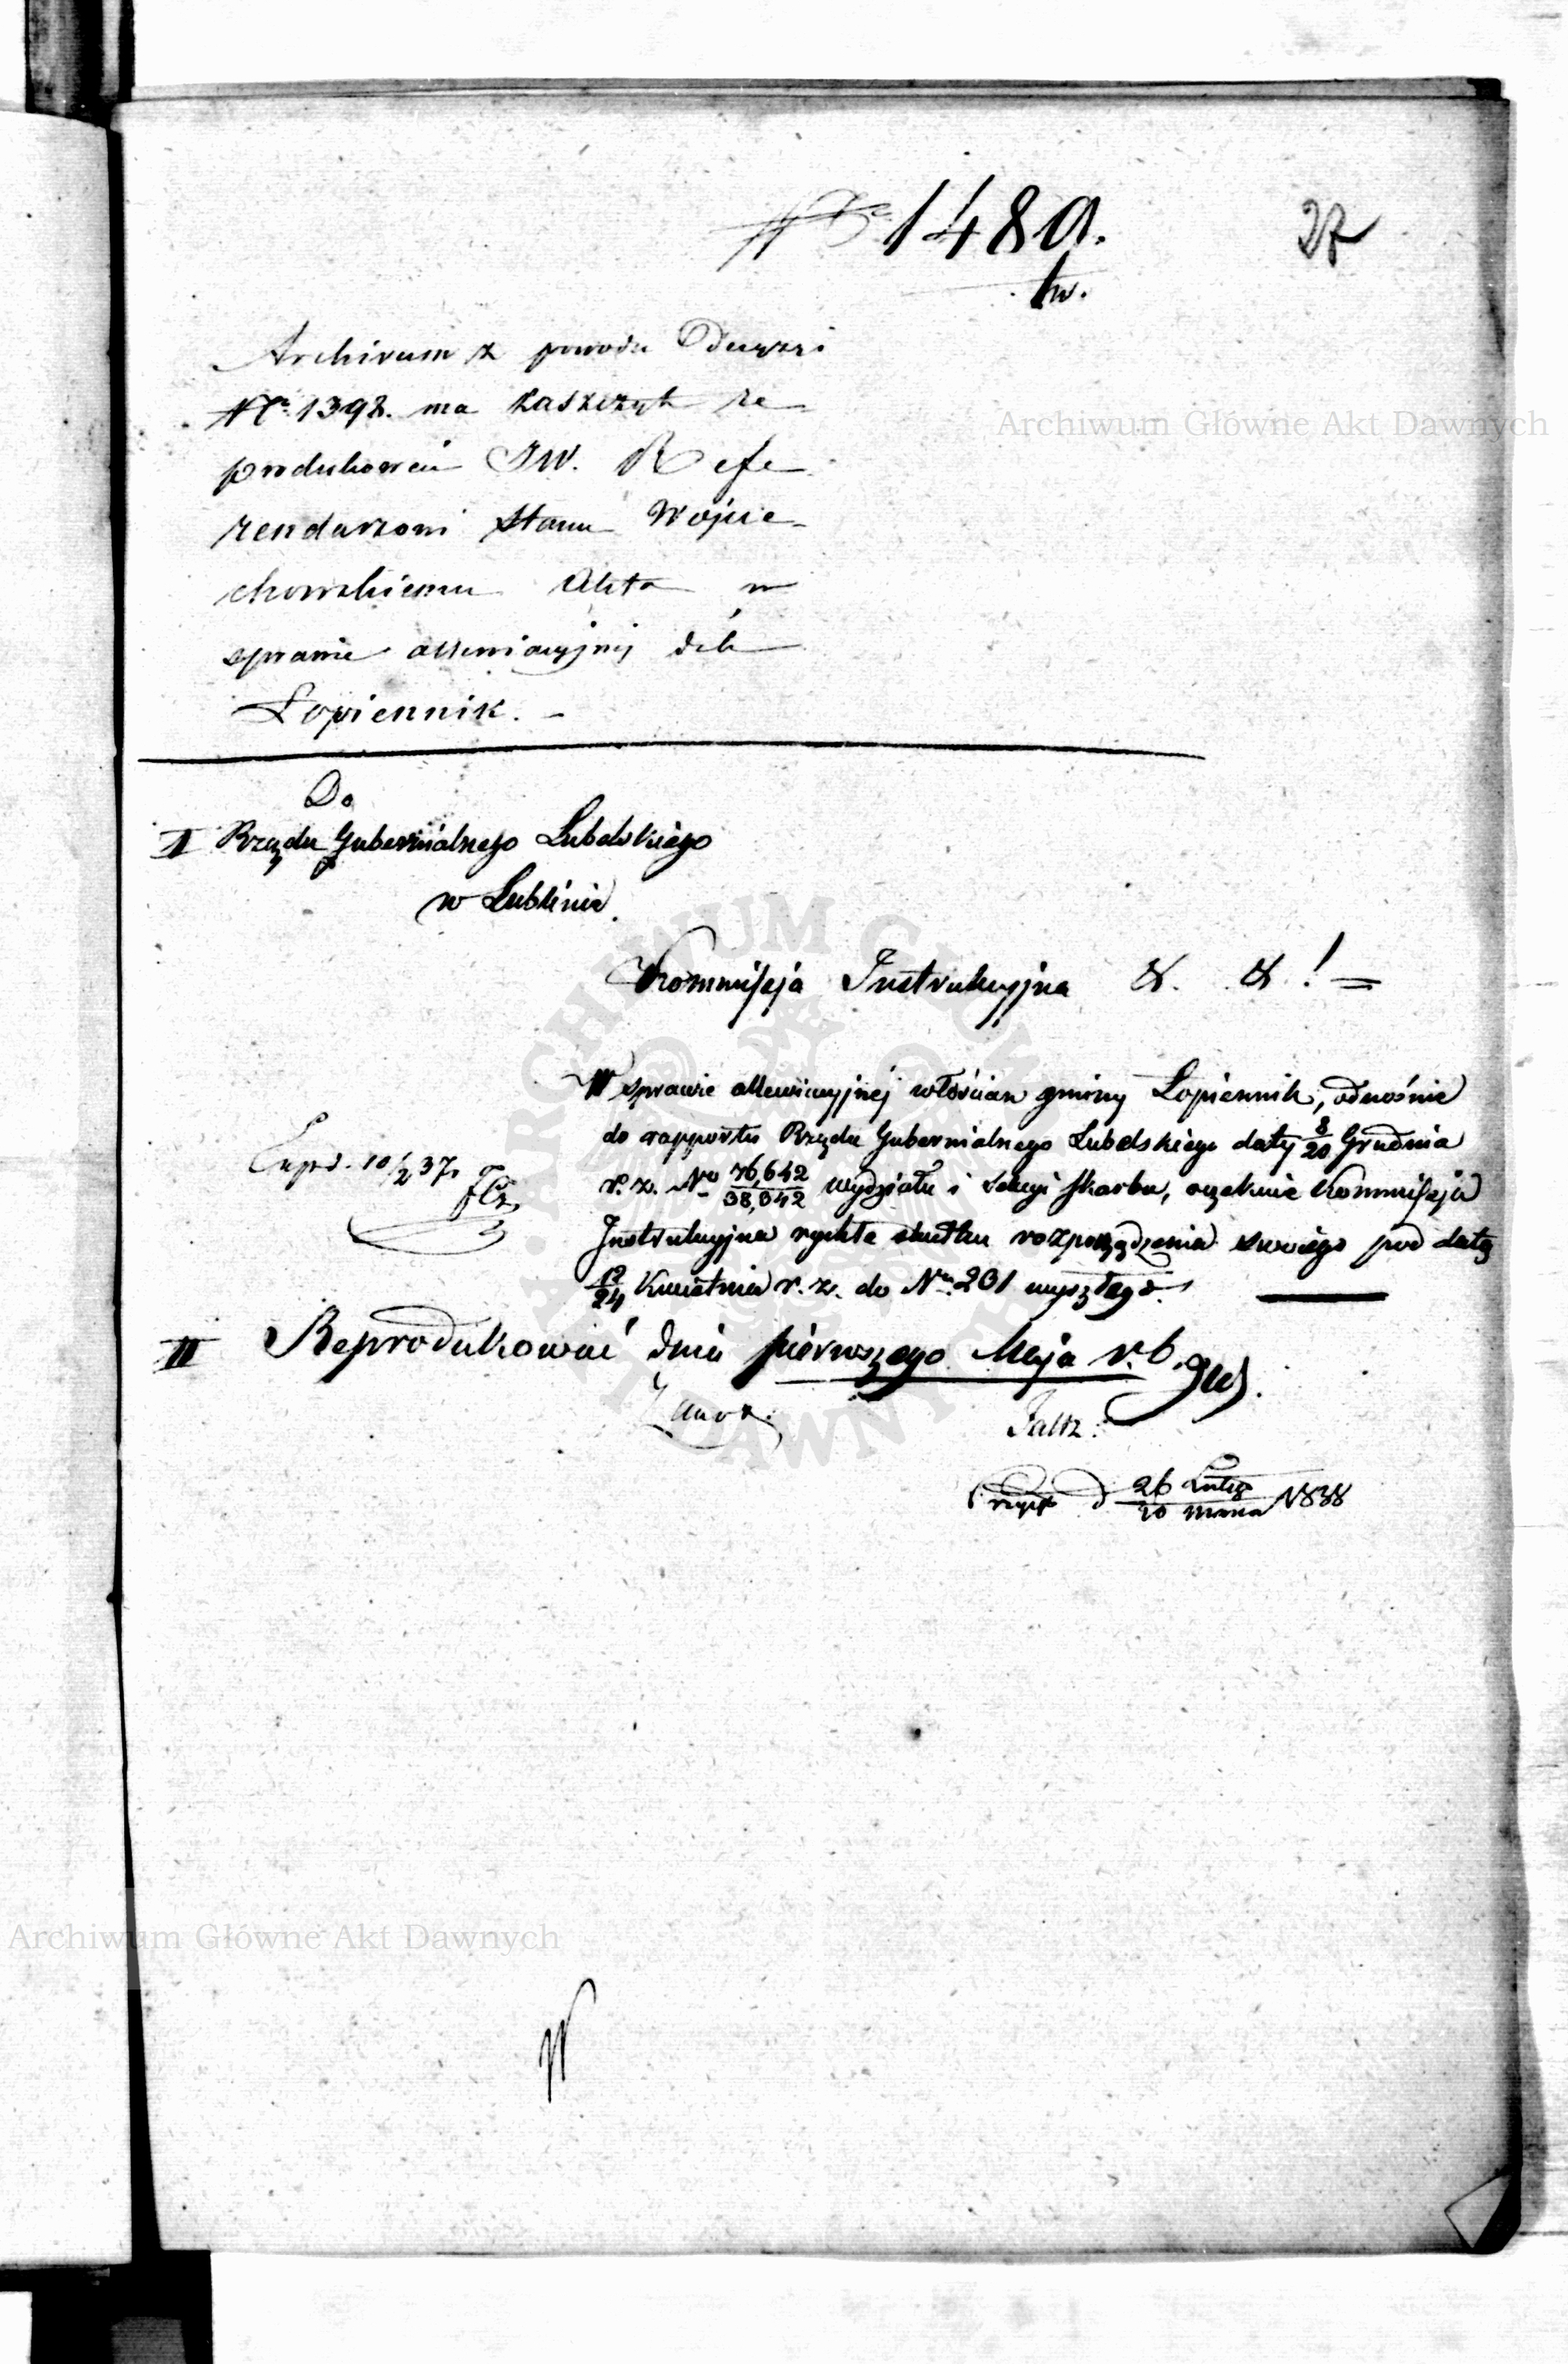 No 1480.
tw.
27
Archivum z powodu Odezwy
No 1392. ma zaszczyt re-
produkować JW. Refe-
rendarzowi Stanu Wojcie-
chowskiemu Akta w
sprawie allewiacyjnej dóbr
Łopiennik. –
Do
I Rządu Gubernialnego Lubelskiego
w Lublinie.
Kommissja Instrukcyjna & & ! =
W sprawie allewiacyjnej włościan gminy Łopiennik, odnośnie
do rapportu Rządu Gubernialnego Lubelskiego daty 8/20 Grudnia
r. z. No 76,642/38,342 wydziału i Sekcyi Skarbu, oczekuie Kommissja
Instrukcyjna rychłe skutku rozporządzenia swoiego pod datą
12/24 Kwietnia r. z. do No 231 wyszłego.
Exped. 10/2 37.
II Reprodukować dnia pierwszego Maja r. b.
26 Lutego/10 Marca 1838
Archiwum Główne Akt Dawnych
Archiwum Główne Akt Dawnych
ARCHIWUM GŁÓWNE AKT DAWNYCH